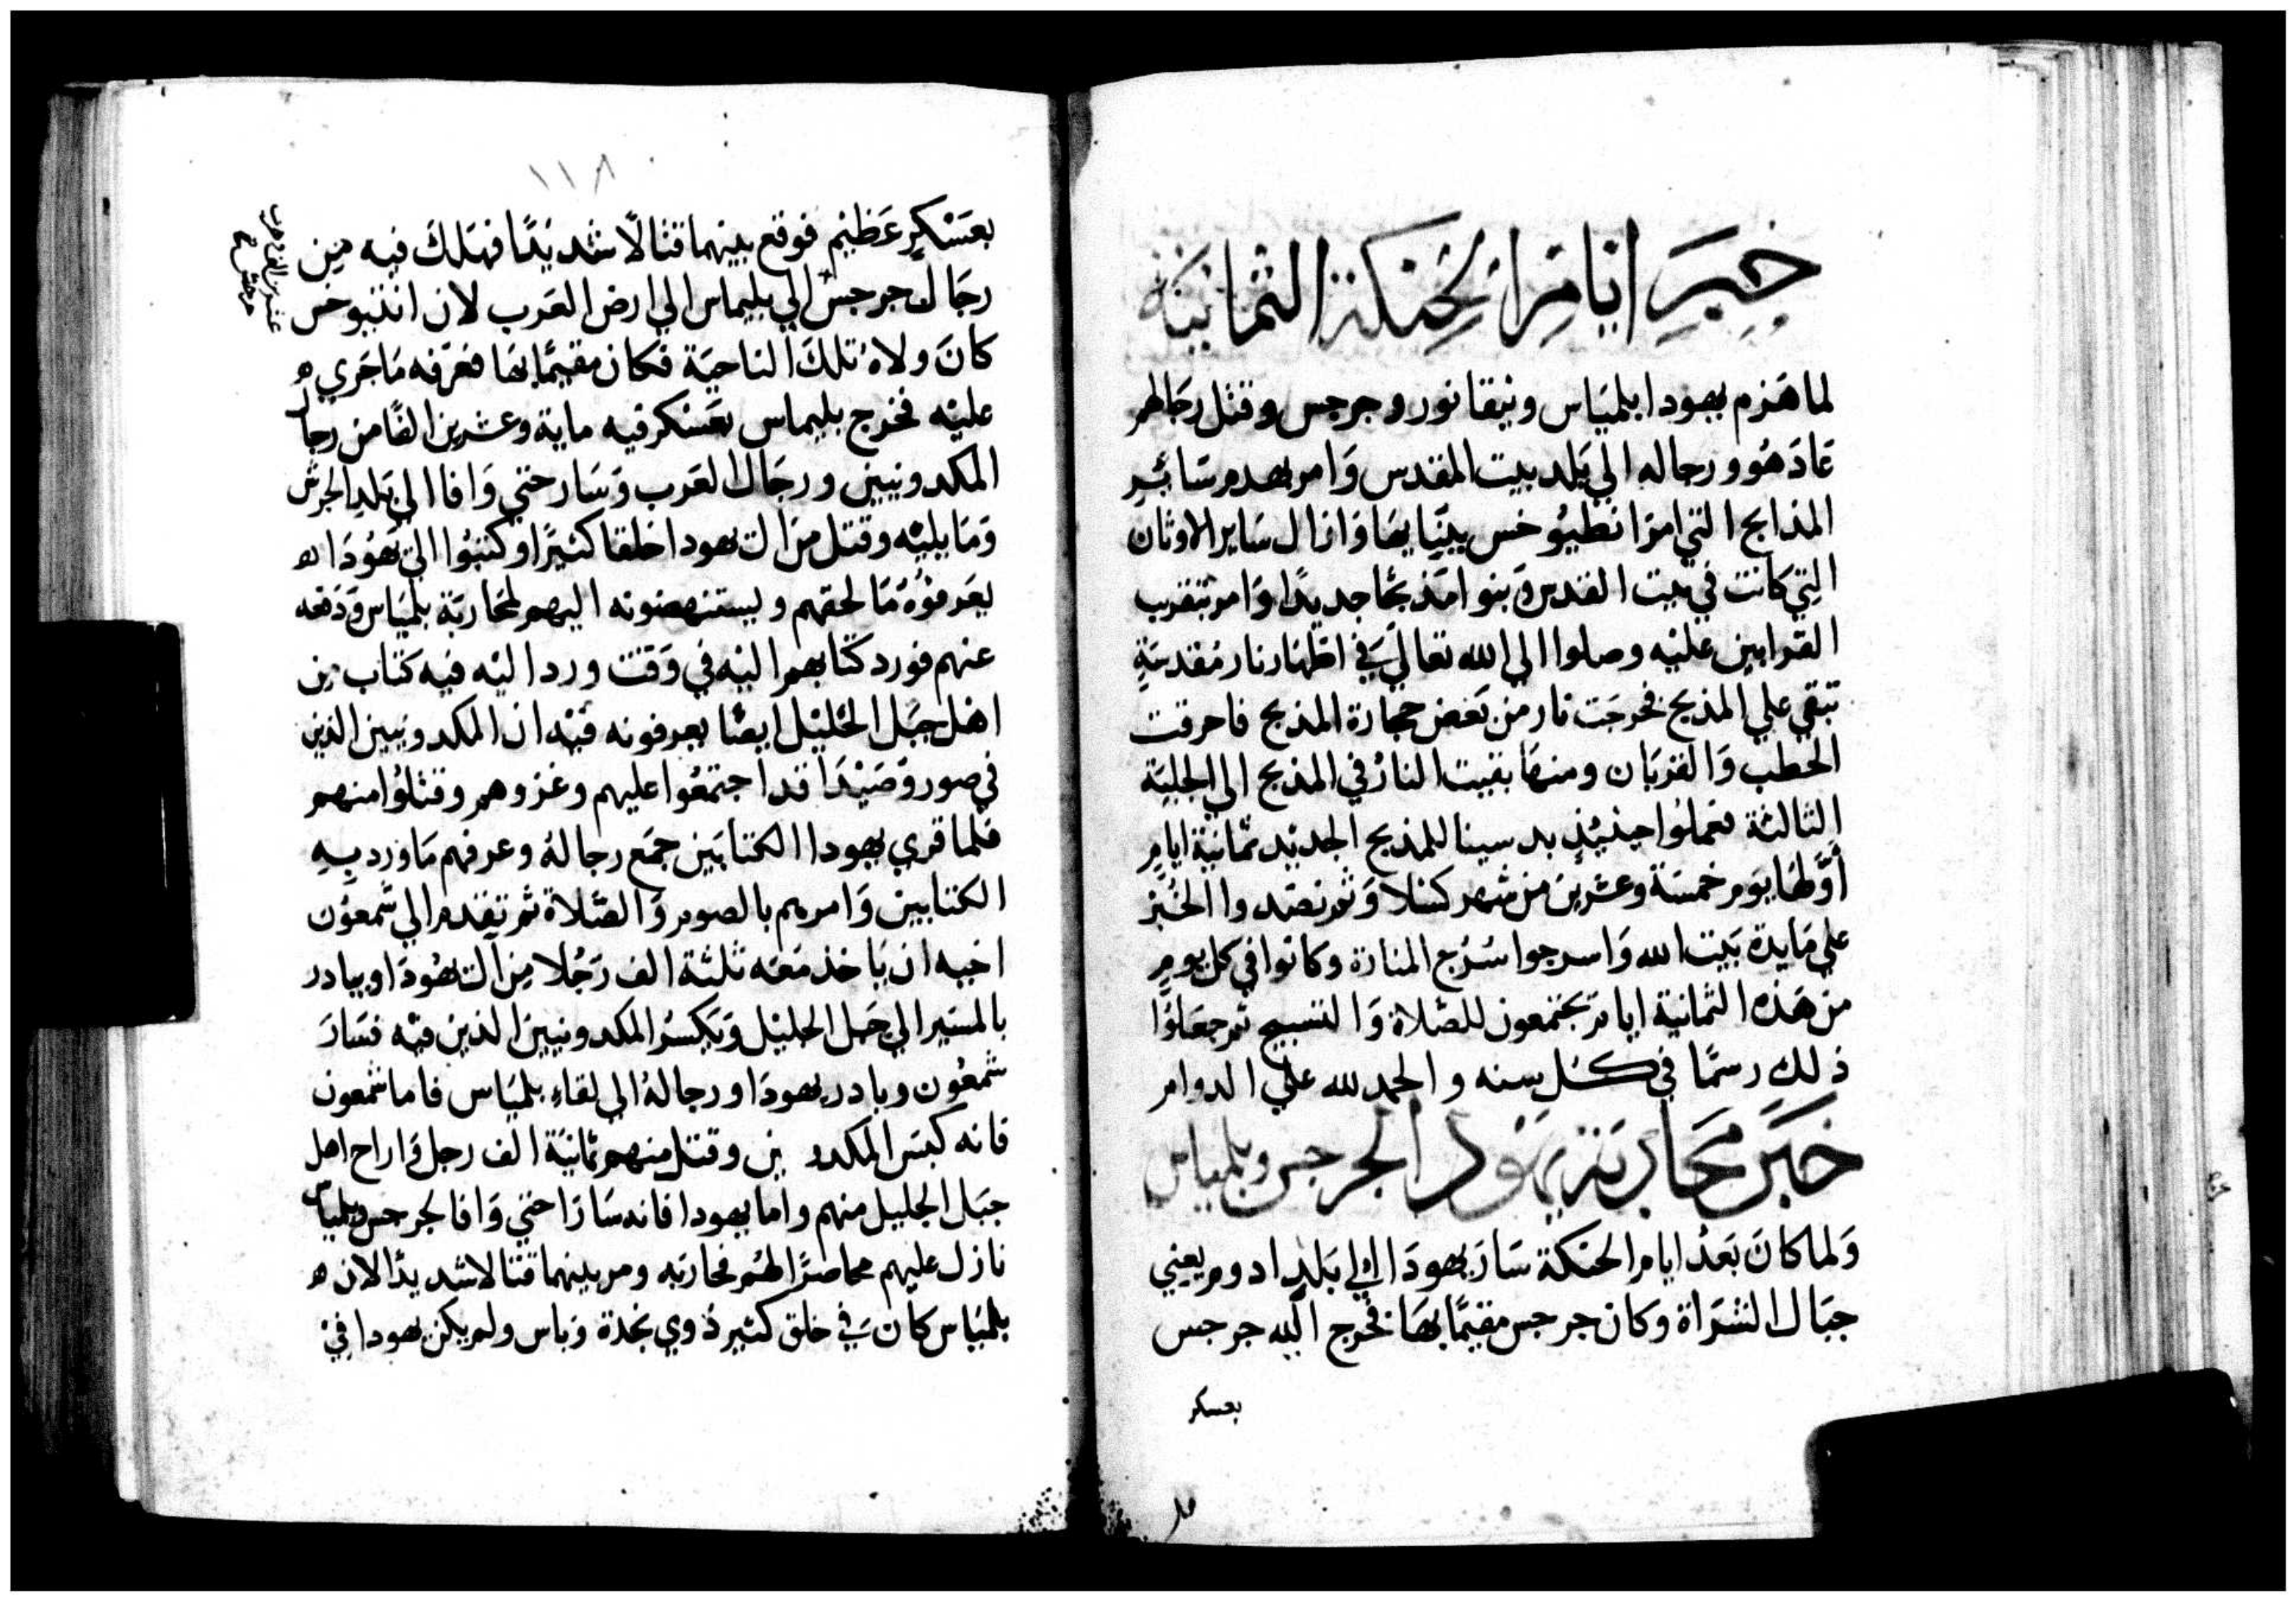 خبر ايام الحنكة الثمانية
لما هزم يهودا بلمياس ونيقانور وجرجس وقتل رجالهم
عاد هو ورجاله الي بلد بيت المقدس وامر بهدم سائر
المذابح التي امر انطيوخس ببنيانها وازال ساير الاوثان
التي كانت في بيت القدس وبنوا مذبحا جديدا وامر بتقرب
القرابين عليه وصلوا الي الله تعالي في اظهار نار مقدسة
تبقي علي المذبح فخرجت نار من بعض حجارة المذبح فاحرقت
الحطب والقربان ومنها بقيت النار في المذبح الي الجلية
الثالثة فعملوا حينئذ بد سينا للمذبح الجديد ثمانية ايام
اولها يوم خمسة وعشرين من شهر كسلا وثم نضدوا الخبز
علي مايدة بيت الله واسرجوا سرج المنارة وكانوا في كل يوم
من هذه الثمانية ايام يجتمعون للصلاة والتسبيح ثم جعلوا
ذلك رسما في كل سنه والحمد لله علي الدوام
خبر محاربة يهودا لجرجس وبلمياس
ولما كان بعد ايام الحنكة سار يهودا الي بلد ادوم يعني
جبال الشراة وكان جرجس مقيما بها فخرج اليه جرجس
بعسكر
١١٨
بعسكر عظيم فوقع بينهما قتالا شديدا فهلك فيه من
رجال جرجس الي بليماس الي ارض العرب لان انتيوخس
كان ولاه تلك الناحية فكان مقيما بها فعرفه ما جري
عليه فخرج بليماس بعسكر فيه ماية وعشرين الفا من رجال
المكدونيين ورجال العرب وسار حتي وافا الي بلد الجرش
وما يليه وقتل من ال يهودا خلقا كثيرا وكتبوا الي يهودا
يعرفوه ما لحقهم ويستنهضونه اليهم لمحاربة بلمياس ودفعه
عنهم فورد كتابهم اليه في وقت ورد اليه فيه كتاب من
اهل جبل الخليل ايضا يعرفونه فيه ان المكدونيين الذين
في صور وصيدا قد اجتمعوا عليهم وغزوهم وقتلوا منهم
فلما قري يهودا الكتابين جمع رجاله وعرفهم ما ورد به
الكتابين وامرهم بالصوم والصلاة ثم تقدم الي شمعون
اخيه ان ياخذ معه ثلثة الف رجلا من آل يهودا ويبادر
بالمسير الي جبل الجليل ويكسر المكدونيين الذين فيه فسار
شمعون وبادر يهودا ورجاله الي لقاء بلمياس فاما شمعون
فانه كبس المكدو ين وقتل منهم ثمانية الف رجل واراح اهل
جبل الجليل منهم واما يهودا فانه سارا حتي وافا لجرجس وبلمياس
نازل عليهم محاصرا لهم فحاربه ومر بينهما قتالا شديدا لان
بلمياس كان في خلق كثير ذوي نجدة وباس ولم يكن يهودا في